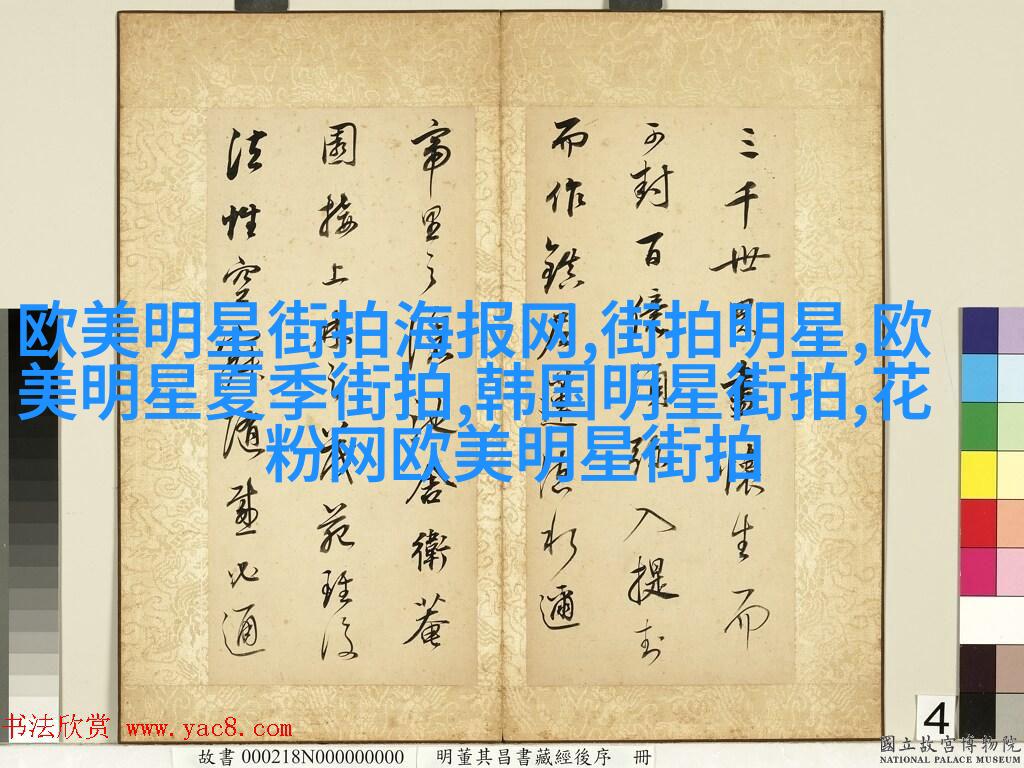 欧美明星街拍海报网,街拍明星,欧
美明星夏季街拍,韩国明星街拍,花
粉网欧美明星街拍
三千世界生而
可封百億入提封
而作鎮
帝里之舍衛菴
園接上苑
法性空隨感通
书法欣赏 www.yac8.com
故書 000218N000000000 明董其昌書藏經後序 冊
4
國立故宮博物院
NATIONAL PALACE MUSEUM